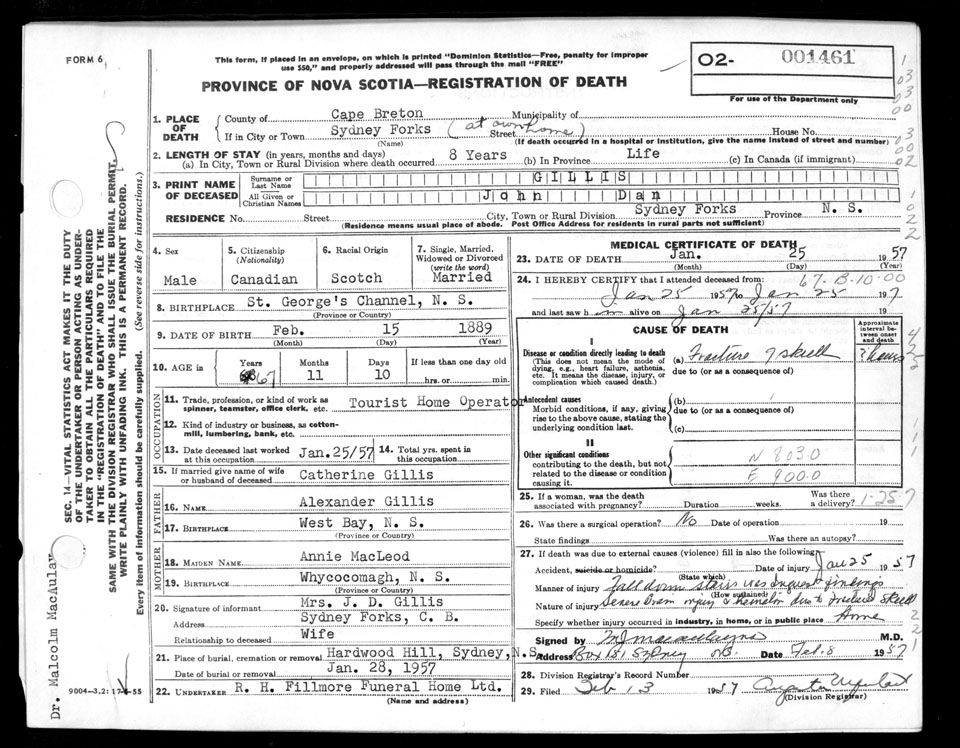 FORM 6
This form, if placed in an envelope, on which is printed "Dominion Statistics—Free, penalty for improper
use $50," and properly addressed will pass through the mail "FREE"
PROVINCE OF NOVA SCOTIA—REGISTRATION OF DEATH
O2- 001461
For use of the Department only
1. PLACE OF DEATH
County of Cape Breton Municipality of
If in City or Town Sydney Forks (at own home) Street House No.
(Name) (If death occurred in a hospital or institution, give the name instead of street and number)
2. LENGTH OF STAY (in years, months and days)
(a) In City, Town or Rural Division where death occurred 8 Years (b) In Province Life (c) In Canada (if immigrant)
3. PRINT NAME OF DECEASED
Surname or Last Name GILLIS
All Given or Christian Names John Dan
RESIDENCE No. Street City, Town or Rural Division Sydney Forks Province N. S.
(Residence means usual place of abode. Post Office Address for residents in rural parts not sufficient)
4. Sex Male
5. Citizenship (Nationality) Canadian
6. Racial Origin Scotch
7. Single, Married, Widowed or Divorced (write the word) Married
8. BIRTHPLACE St. George's Channel, N. S.
(Province or Country)
9. DATE OF BIRTH Feb. 15 1889
(Month) (Day) (Year)
10. AGE in Years 67 Months 11 Days 10 If less than one day old hrs. or min.
OCCUPATION
11. Trade, profession, or kind of work as spinner, teamster, office clerk, etc. Tourist Home Operator
12. Kind of industry or business, as cotton-mill, lumbering, bank, etc.
13. Date deceased last worked at this occupation Jan.25/57
14. Total yrs. spent in this occupation
15. If married give name of wife or husband of deceased Catherine Gillis
FATHER
16. NAME Alexander Gillis
17. BIRTHPLACE West Bay, N. S.
(Province or Country)
MOTHER
18. MAIDEN NAME Annie MacLeod
19. BIRTHPLACE Whycocomagh, N. S.
(Province or Country)
20. Signature of informant Mrs. J. D. Gillis
Address Sydney Forks, C. B.
Relationship to deceased Wife
21. Place of burial, cremation or removal Hardwood Hill, Sydney, N.S.
Date of burial or removal Jan. 28, 1957
22. UNDERTAKER R. H. Fillmore Funeral Home Ltd.
(Name and address)
MEDICAL CERTIFICATE OF DEATH
23. DATE OF DEATH Jan. 25 1957
(Month) (Day) (Year)
24. I HEREBY CERTIFY that I attended deceased from: 67-B-10-00
Jan 25 1957 to Jan 25 1957
and last saw h im alive on Jan 25/57 19
CAUSE OF DEATH
Approximate interval between onset and death
I
Disease or condition directly leading to death (a) Fracture of skull ? hours
(This does not mean the mode of dying, e.g., heart failure, asthenia, etc. It means the disease, injury, or complication which caused death.)
due to (or as a consequence of)
Antecedent causes (b)
Morbid conditions, if any, giving rise to the above cause, stating the underlying condition last.
due to (or as a consequence of)
(c)
II
Other significant conditions
contributing to the death, but not related to the disease or condition causing it.
N 8030
E 900.0
25. If a woman, was the death associated with pregnancy? Duration weeks. Was there a delivery? 1-25-7
26. Was there a surgical operation? No Date of operation 19
State findings Was there an autopsy?
27. If death was due to external causes (violence) fill in also the following
Accident, suicide or homicide? Date of injury Jan 25 1957
(State which)
Manner of injury Fall down stairs was inquest findings
(How sustained)
Nature of injury Severe brain injury due to fractured skull
Specify whether injury occurred in industry, in home, or in public place Home
Signed by M.D.
Address Box 151 Sydney N.S. Date Feb. 8 1957
28. Division Registrar's Record Number
29. Filed Feb 13 1957
(Division Registrar)
SEC. 14—VITAL STATISTICS ACT MAKES IT THE DUTY
OF THE UNDERTAKER OR PERSON ACTING AS UNDER-
TAKER TO OBTAIN ALL THE PARTICULARS REQUIRED
IN THE "REGISTRATION OF DEATH" AND TO FILE THE
SAME WITH THE DIVISION REGISTRAR WHO SHALL ISSUE THE BURIAL PERMIT.
WRITE PLAINLY WITH UNFADING INK. THIS IS A PERMANENT RECORD.
Every item of information should be carefully supplied. (See reverse side for instructions.)
Dr. Malcolm MacAulay
9004—3.2: 17-4-55